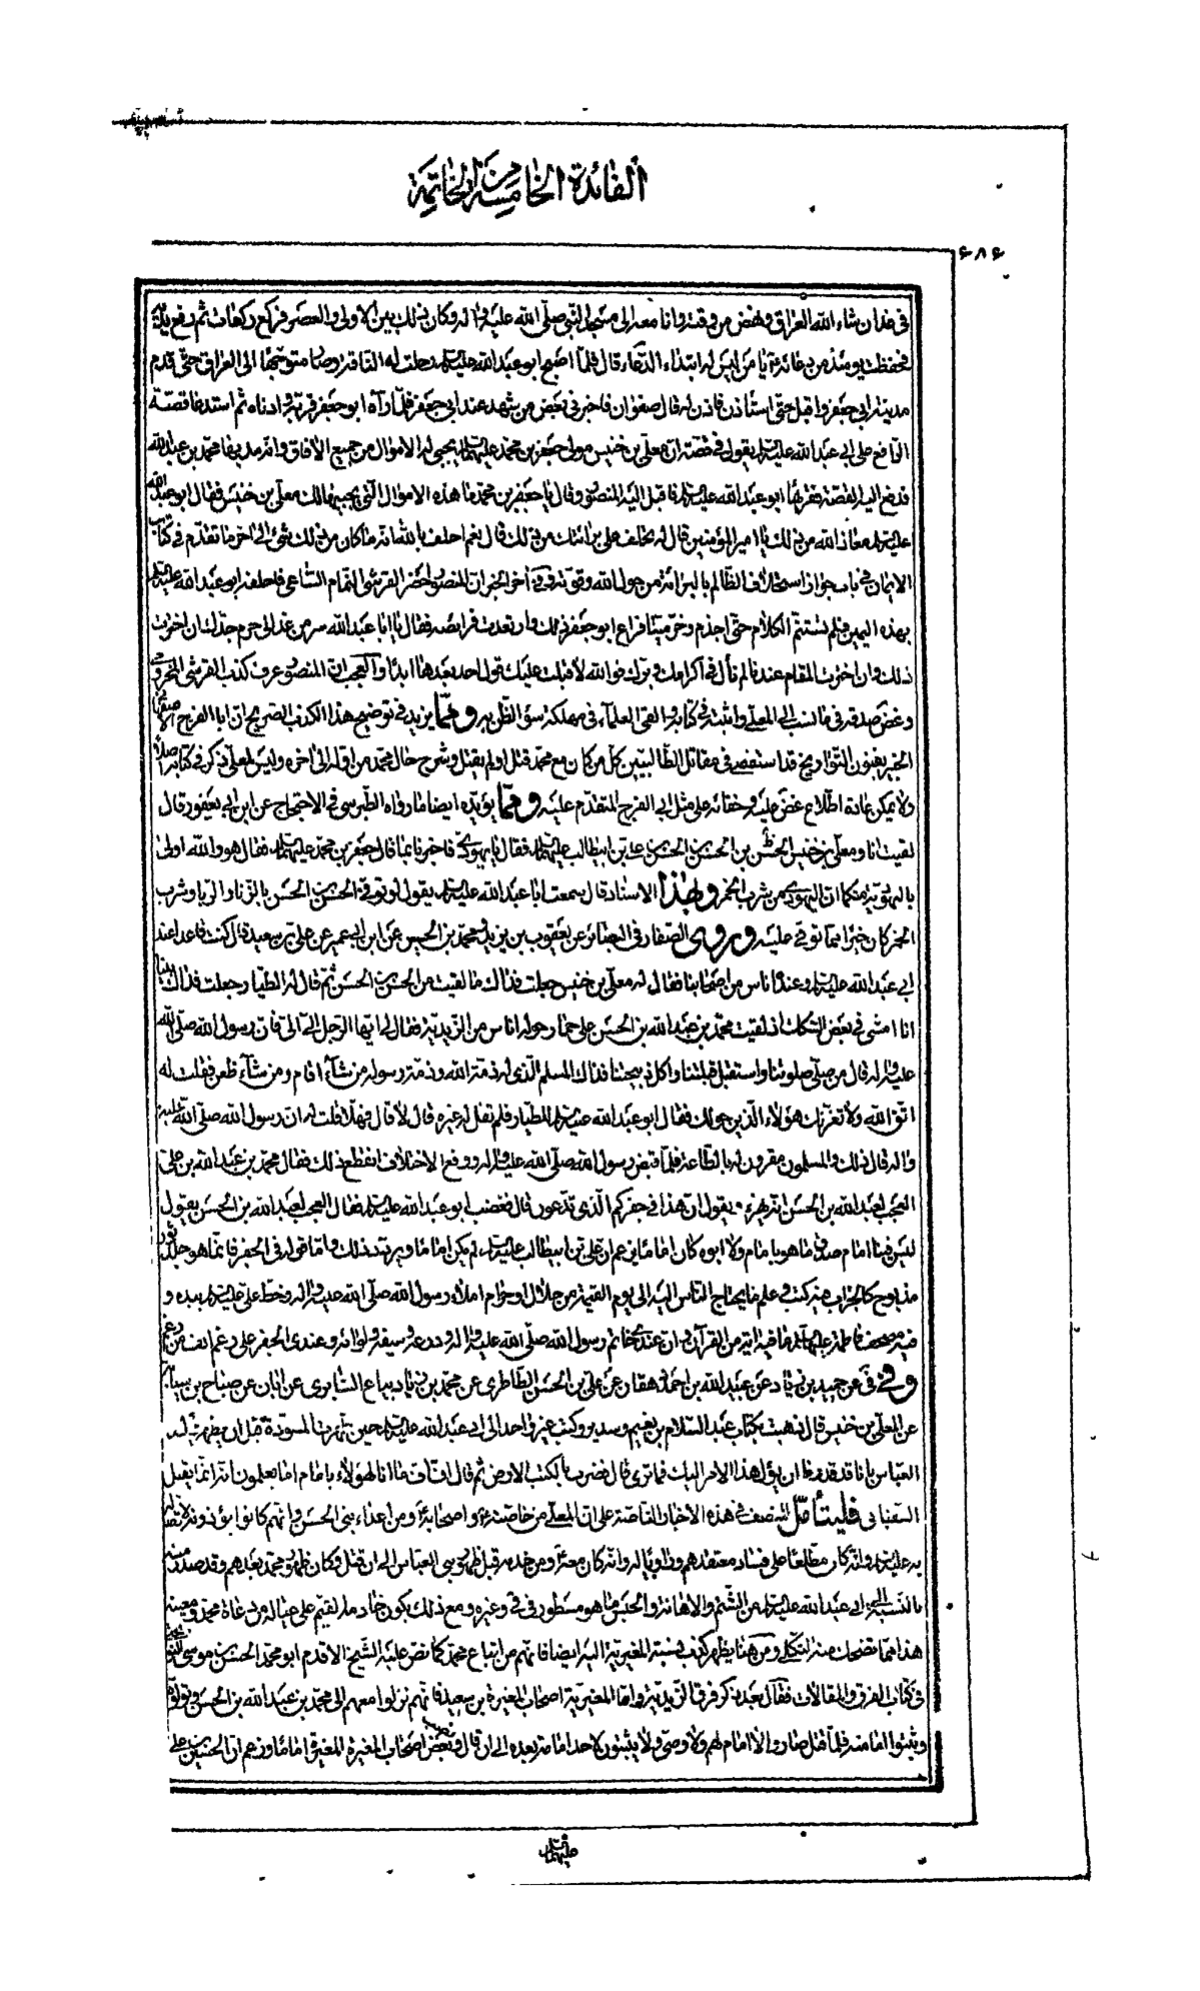 الفائدة الخامسة من الخاتمة
۶۸۶
في غد ان شاء الله العراق ونهض من وقته وانا معه الى مسجد النبي صلى الله عليه واله وكان ذلك بين الاولى والعصر فركع ركعات ثم رفع يديه
فحفظت يومئذ من دعائه يا من ليس له ابتداء الدعاء قال فلما اصبح ابو عبد الله عليه السلام رحلت له الناقة وصار متوجها الى العراق حتى قدم
مدينة ابي جعفر واقبل حتى استأذن فاذن له قال صفوان فاخبرني بعض من شهد عند ابي جعفر فلما رآه ابو جعفر قربه وادناه ثم استدعا قصة
الرافع على ابي عبد الله عليه السلام يقول في قصته ان معلى بن خنيس مولى جعفر بن محمد عليهما السلام يجبي له الاموال من جميع الافاق وانه مد بها محمد بن عبد الله
فدفع اليه القصة فقرأها ابو عبد الله عليه السلام فاقبل اليه المنصور وقال يا جعفر بن محمد ما هذه الاموال التي يجبيها لك معلى بن خنيس فقال ابو عبد الله
عليه السلام معاذ الله من ذلك يا امير المؤمنين قال له تحلف على برائتك من ذلك قال نعم احلف بالله انه ما كان من ذلك شئ الى اخر ما تقدم في كتاب
الايمان في باب جواز استحلاف الظالم بالبرائة من حول الله وقوته وفي اخر الخبر ان المنصور احضر القرشي النمام الساعي فاحلفه ابو عبد الله عليه السلام
بهذه اليمين فلم يستتم الكلام حتى اجذم وخر ميتا فراع ابو جعفر ذلك وارتعدت فرائصه فقال يا ابا عبد الله سر من غد الى حرم جدك ان اخترت
ذلك وان اخترت المقام عندنا لم نأل في اكرامك وبرك فوالله لا قبلت عليك قول احد بعدها ابدا والعجب ان المنصور عرف كذب القرشي المخزومي
وغض صدقه في ما نسب الى المعلى واثبته في كتابه وألقى العلماء في مهلكة سوء الظن به ومما يزيد في توضيح هذا الكذب الصريح ان ابا الفرج الاصفهاني
الخبير بفنون التواريخ قد استقصى في مقاتل الطالبيين كل من كان مع محمد قتل او لم يقتل وشرح حال محمد من اوله الى اخره وليس لمعلى ذكر في كتابه اصلا
ولا يمكن عادة اطلاع غض عليه وخفائه على مثل ابي الفرج المتقدم عليه ومما يؤيده ايضا ما رواه الطبرسي في الاحتجاج عن ابن ابي يعفور قال
لقيت انا ومعلى بن خنيس الحسن بن الحسن بن الحسن بن علي بن ابيطالب عليهم السلام فقال يا يهودي فاخبرنا بما قال جعفر بن محمد عليهما السلام فقال هو والله اولى
باليهودية منكما ان اليهودي من شرب الخمر وبهذا الاسناد قال سمعت ابا عبد الله عليه السلام يقول لو توفي الحسن بن الحسن بالزنا والربا وشرب
الخمر كان خيرا مما توفي عليه وروى الصفار في البصائر عن يعقوب بن يزيد ومحمد بن الحسين عن ابن ابي عمير عن علي بن سعيد قال كنت قاعدا عند
ابي عبد الله عليه السلام وعنده اناس من اصحابنا فقال له معلى بن خنيس جعلت فداك ما لقيت من الحسن بن الحسن ثم قال له الطيار جعلت فداك بينا
انا امشي في بعض السكك اذ لقيت محمد بن عبد الله بن الحسن على حمار حوله اناس من الزيدية فقال لي ايها الرجل الي الي فان رسول الله صلى الله
عليه واله قال من صلى صلوتنا واستقبل قبلتنا واكل ذبيحتنا فذاك المسلم الذي له ذمة الله وذمة رسوله من شاء اقام ومن شاء ظعن فقلت له
اتق الله ولا تغرنك هؤلاء الذين حولك فقال ابو عبد الله عليه السلام للطيار فلم تقل له غيره قال لا قال فهلا قلت له ان رسول الله صلى الله عليه
واله قال ذلك والمسلمون مقرون له بالطاعة فلما قبض رسول الله صلى الله عليه واله ووقع الاختلاف انقطع ذلك فقال محمد بن عبد الله بن علي
العجب لعبد الله بن الحسن انه يهزء ويقول ان هذا في جفركم الذي تدعون قال فغضب ابو عبد الله عليه السلام فقال العجب لعبد الله بن الحسن يقول
ليس فينا امام صدق ما هو بامام ولا ابوه كان اماما يزعم ان علي بن ابيطالب عليه السلام لم يكن اماما ويردد ذلك واما قوله في الجفر فانما هو جلد ثور
مذبوح كالجراب فيه كتب وعلم ما يحتاج الناس اليه الى يوم القيمة من حلال او حرام املاء رسول الله صلى الله عليه واله وخط علي عليه السلام بيده و
فيه مصحف فاطمة عليها السلام ما فيه اية من القرآن وان عندي خاتم رسول الله صلى الله عليه واله ودرعه وسيفه ولوائه وعندي الجفر على رغم انف من زعم
وفي في عن حميد بن زياد عن عبيد الله بن احمد الدهقان عن علي بن الحسن الطاطري عن محمد بن زياد بياع السابري عن ابان عن صباح بن سيابة
عن المعلى بن خنيس قال ذهبت بكتاب عبد السلام بن نعيم وسدير وكتب غير واحد الى ابي عبد الله عليه السلام حين ظهرت المسودة قبل ان يظهر ولد
العباس بانا قد قدرنا ان يؤل هذا الامر اليك فما ترى قال فضرب بالكتب الارض ثم قال اف اف ما انا لهؤلاء بامام اما يعلمون انه انما يقتل
السفياني فليتأمل المنصف في هذه الاخبار الناصة على ان المعلى من خاصته واصحابه ومن اعداء بني الحسن وانهم كانوا يؤذونه
به عليه السلام وانه كان مطلعا على فساد معتقدهم ودواياله وانه كان معه ومن خدمه قبل ظهور بني العباس الى ان قتل وكان ظهور محمد بعدهم وقد صدر منه
بالنسبة الى ابي عبد الله عليه السلام من الشتم والاهانة والحبس ما هو مسطور في في وغيره ومع ذلك يكون خادمه القيم على عياله من دعاة محمد ومعينه
هذا مما تضحك منه الثكلى ومن هنا يظهر كذب نسبة المغيرية اليه ايضا فانهم من اتباع محمد كما نص عليه الشيخ الاقدم ابو محمد الحسن بن موسى النوبختي
في كتاب الفرق والمقالات فقال بعد ذكر فرق الزيدية واما المغيرية اصحاب المغيرة بن سعيد فانهم نزلوا معهم الى محمد بن عبد الله بن الحسن وتولوه
ويثبتوا امامته فلما قتل صاروا لا امام لهم ولا وصي ولا يثبتون لاحد امامة بعده الى ان قال ونصب بعض اصحاب المغيرة المغيرة اماما وزعم ان الحسين بن علي
عليهما السلام